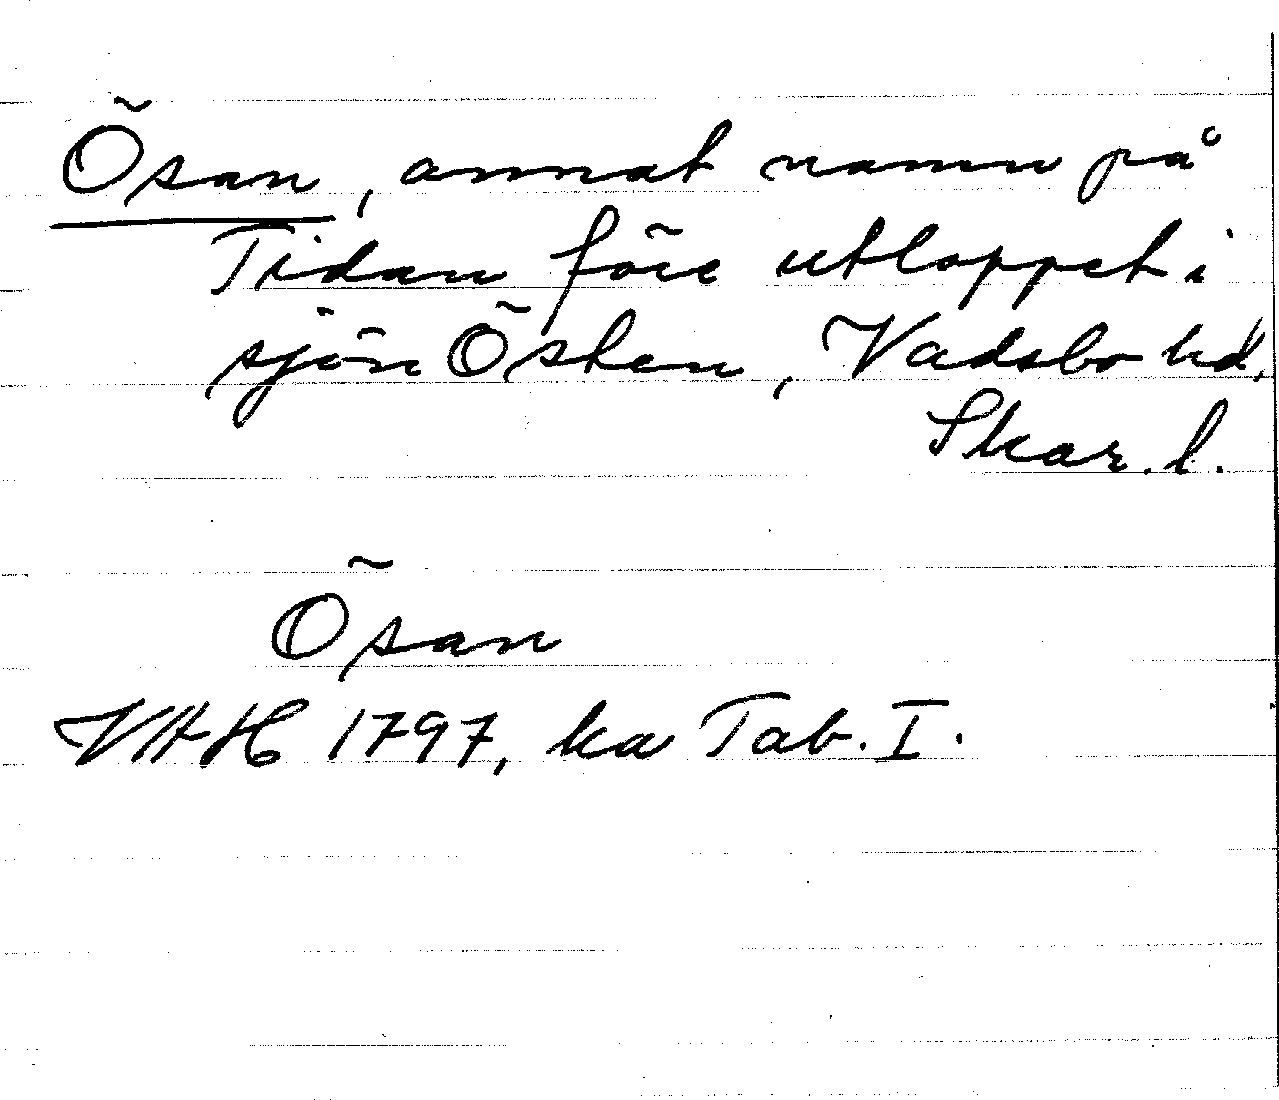 Ösan, annat namn på
Tidan före utloppet i
sjön Östen, Vadsbo hd,
Skar. l.
Ösan
VAH 1797, ka Tab. I.